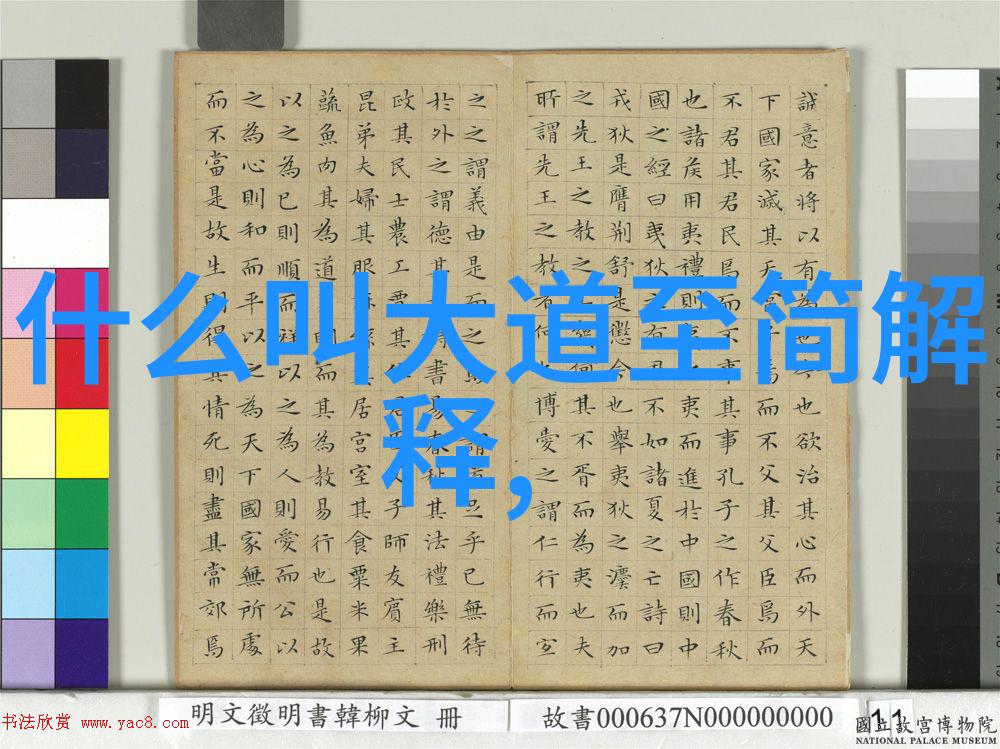 誠意者將以有為也欲治其心而外天
下國家滅其天焉而不父其父臣焉而
不君其君民焉而不事其事孔子之作春秋
也諸侯用夷禮則夷而進於中國則中
國之經曰夷狄之有君不如諸夏之亡詩曰
戎狄是膺荊舒是懲今也舉夷狄之灋而加
之先王之教之何其不胥而為夷也夫
所謂先王之教者何博愛之謂仁行而宜
之之謂義由是而之焉謂足乎已無待
於外之謂德其詩書易春秋其法禮樂刑
政其民士農工賈其君子師友賓主
昆弟夫婦其服麻其居宮室其食粟米果
蔬魚肉其為道明而其為教易行也是故
以之為已則順而祥以之為人則愛而公以
之為心則和而平以之為天下國家無所處
而不當是故生則得其情死則盡其常郊焉
什么叫大道至简解
释,
书法欣赏 www.yac8.com
明文徵明書韓柳文 冊
故書000637N000000000
11
國立故宮博物院
NATIONAL PALACE MUSEUM